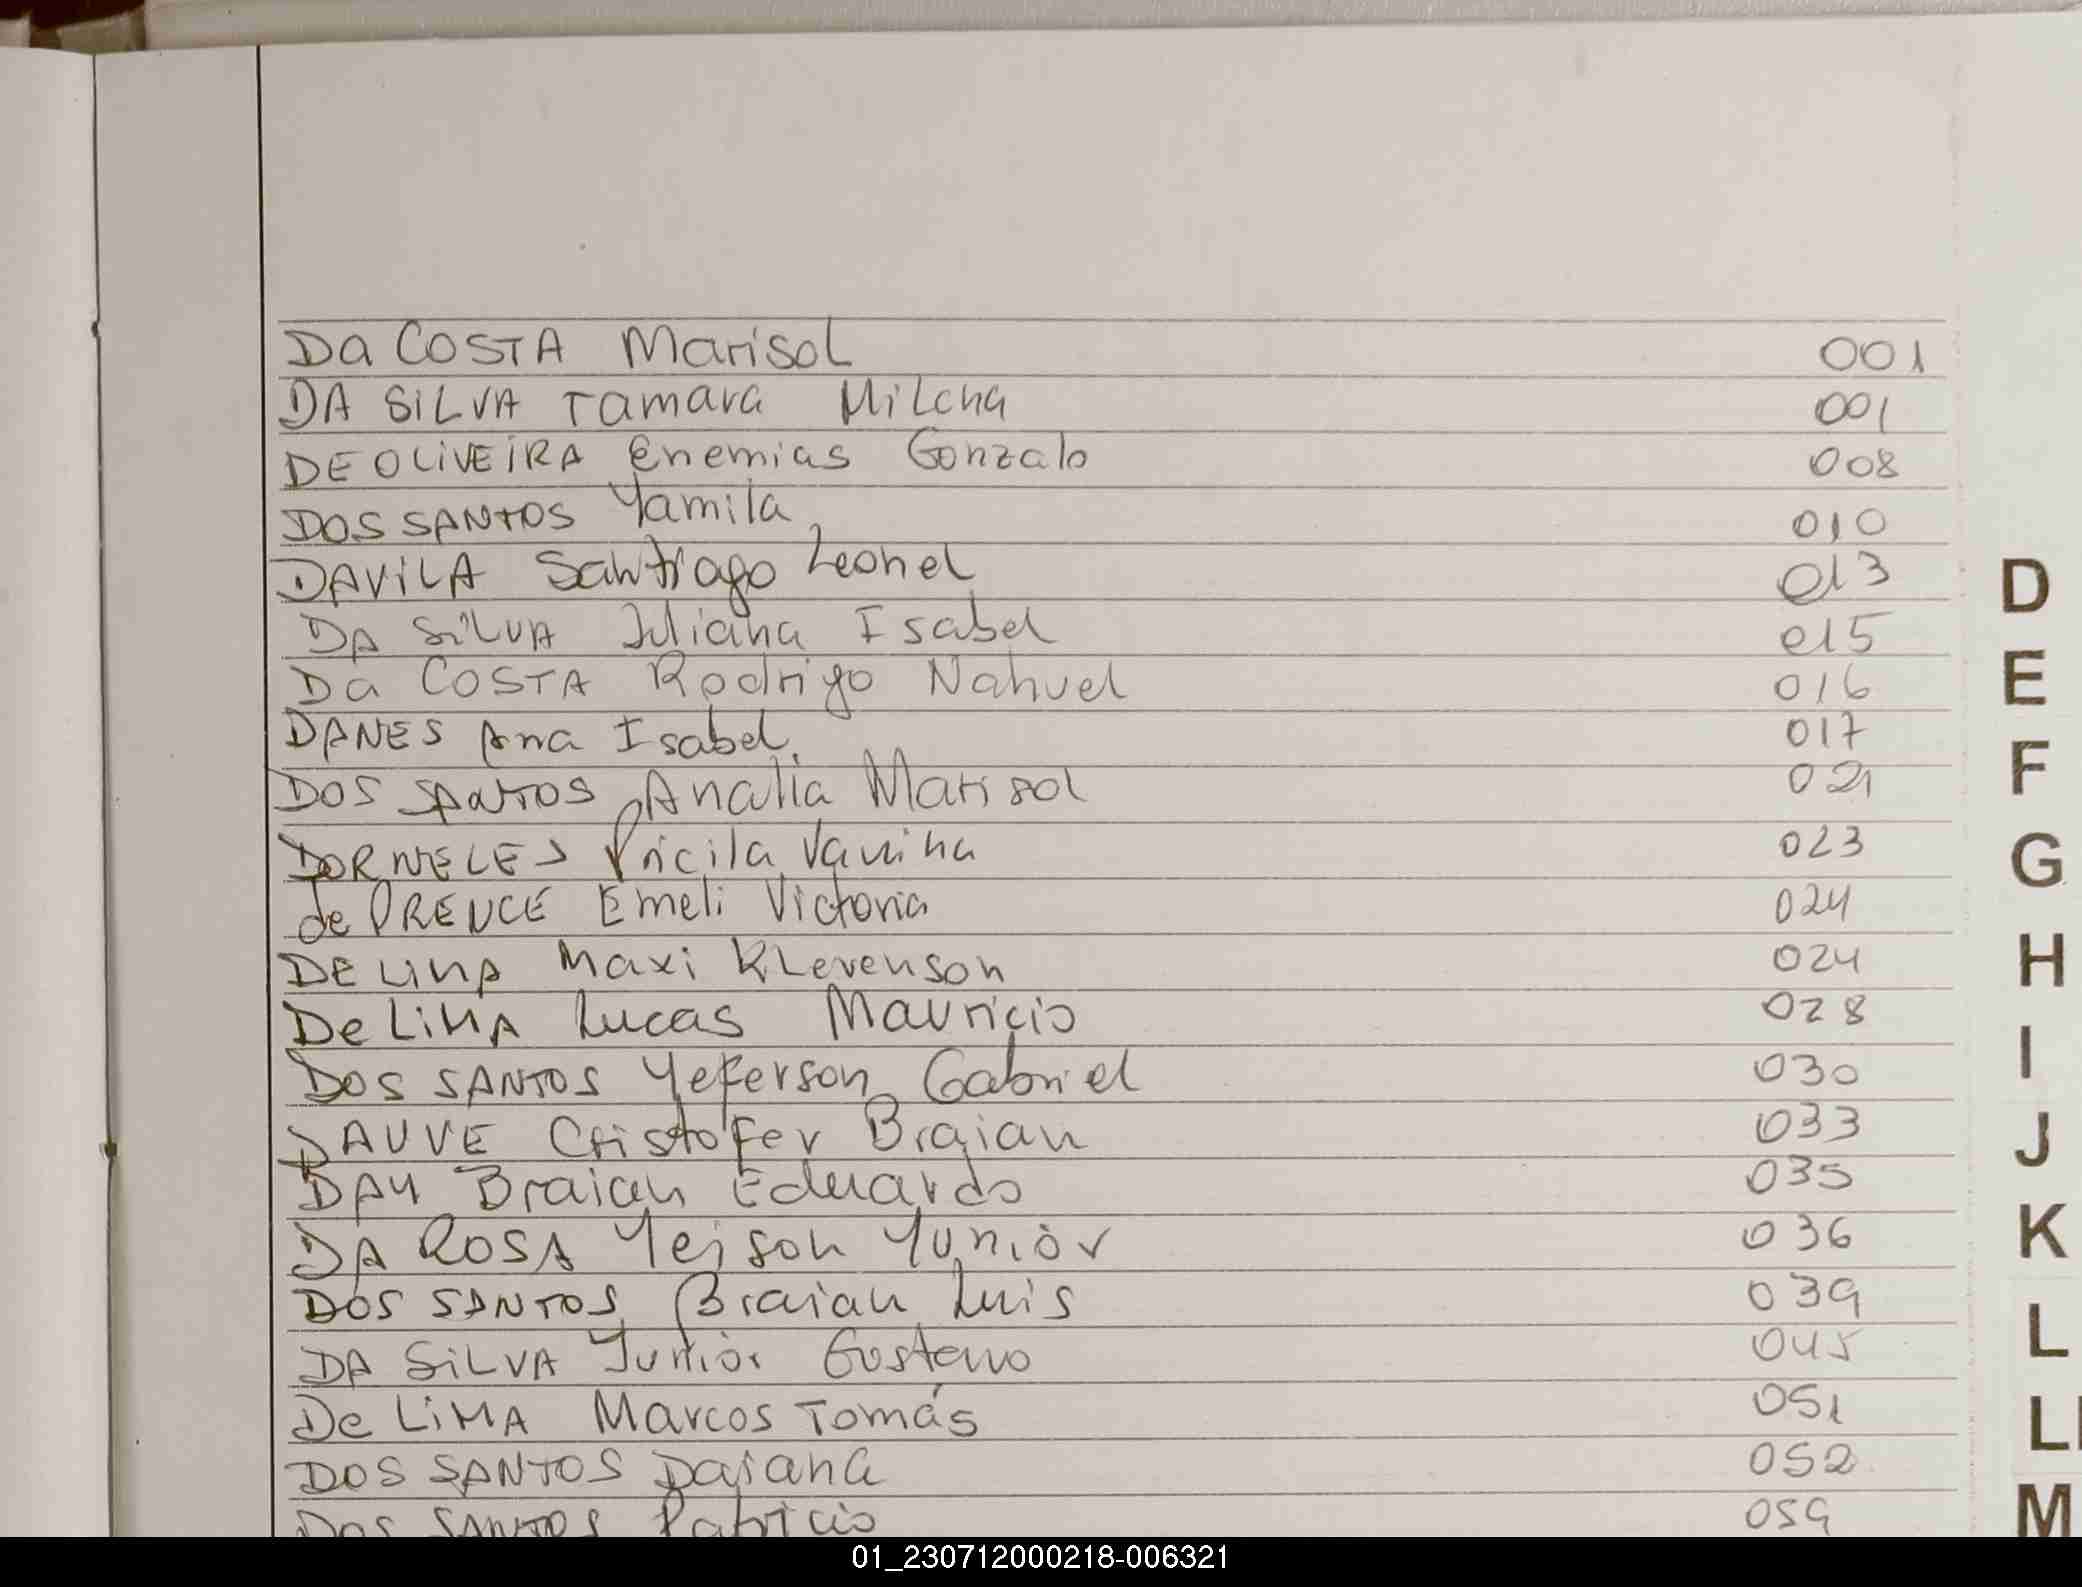 Da COSTA Marisol 001
DA SiLVA Tamara Milcha 001
DE OLiVEiRA Enemias Gonzalo 008
DOS SANTOS Yamila 010
DAViLA Santiago Leonel 013
DA SiLVA Juliana Isabel 015
Da COSTA Rodrigo Nahuel 016
DANES Ana Isabel 017
DOS SANTOS Analia Marisol 021
DORNELES Pricila Vanina 023
de PRENCE Emeli Victoria 024
DE LiMA Maxi Klevenson 024
De LiMA Lucas Mauricio 028
DOS SANTOS Yeferson Gabriel 030
DAUVE Cristofer Braian 033
DAY Braian Eduardo 035
DA ROSA Yeison Yunior 036
DOS SANTOS Braian Luis 039
DA SiLVA Junior Gustavo 045
De LiMA Marcos Tomás 051
DOS SANTOS Daiana 052
DOS SANTOS Patricio 059
D
E
F
G
H
I
J
K
L
LL
M
01_230712000218-006321